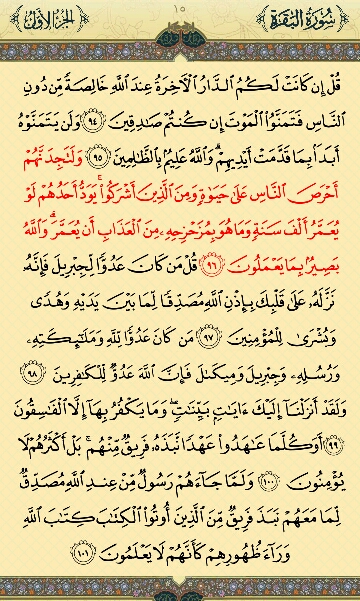 سُورَةُ البَقَرَة
١٥
الجُزءُ الأوَّل
قُلْ إِن كَانَتْ لَكُمُ الدَّارُ الْآخِرَةُ عِندَ اللَّهِ خَالِصَةً مِّن دُونِ
النَّاسِ فَتَمَنَّوُا الْمَوْتَ إِن كُنتُمْ صَادِقِينَ ﴿٩٤﴾ وَلَن يَتَمَنَّوْهُ
أَبَدًا بِمَا قَدَّمَتْ أَيْدِيهِمْ ۗ وَاللَّهُ عَلِيمٌ بِالظَّالِمِينَ ﴿٩٥﴾ وَلَتَجِدَنَّهُمْ
أَحْرَصَ النَّاسِ عَلَىٰ حَيَاةٍ وَمِنَ الَّذِينَ أَشْرَكُوا ۚ يَوَدُّ أَحَدُهُمْ لَوْ
يُعَمَّرُ أَلْفَ سَنَةٍ وَمَا هُوَ بِمُزَحْزِحِهِ مِنَ الْعَذَابِ أَن يُعَمَّرَ ۗ وَاللَّهُ
بَصِيرٌ بِمَا يَعْمَلُونَ ﴿٩٦﴾ قُلْ مَن كَانَ عَدُوًّا لِّجِبْرِيلَ فَإِنَّهُ
نَزَّلَهُ عَلَىٰ قَلْبِكَ بِإِذْنِ اللَّهِ مُصَدِّقًا لِّمَا بَيْنَ يَدَيْهِ وَهُدًى
وَبُشْرَىٰ لِلْمُؤْمِنِينَ ﴿٩٧﴾ مَن كَانَ عَدُوًّا لِّلَّهِ وَمَلَٰٓئِكَتِهِۦ
وَرُسُلِهِۦ وَجِبْرِيلَ وَمِيكَىٰلَ فَإِنَّ اللَّهَ عَدُوٌّ لِّلْكَٰفِرِينَ ﴿٩٨﴾
وَلَقَدْ أَنزَلْنَآ إِلَيْكَ ءَايَٰتٍ بَيِّنَٰتٍ ۖ وَمَا يَكْفُرُ بِهَآ إِلَّا الْفَٰسِقُونَ
﴿٩٩﴾ أَوَكُلَّمَا عَٰهَدُوا عَهْدًا نَّبَذَهُۥ فَرِيقٌ مِّنْهُم ۚ بَلْ أَكْثَرُهُمْ لَا
يُؤْمِنُونَ ﴿١٠٠﴾ وَلَمَّا جَآءَهُمْ رَسُولٌ مِّنْ عِندِ اللَّهِ مُصَدِّقٌ
لِّمَا مَعَهُمْ نَبَذَ فَرِيقٌ مِّنَ الَّذِينَ أُوتُوا الْكِتَٰبَ كِتَٰبَ اللَّهِ
وَرَآءَ ظُهُورِهِمْ كَأَنَّهُمْ لَا يَعْلَمُونَ ﴿١٠١﴾